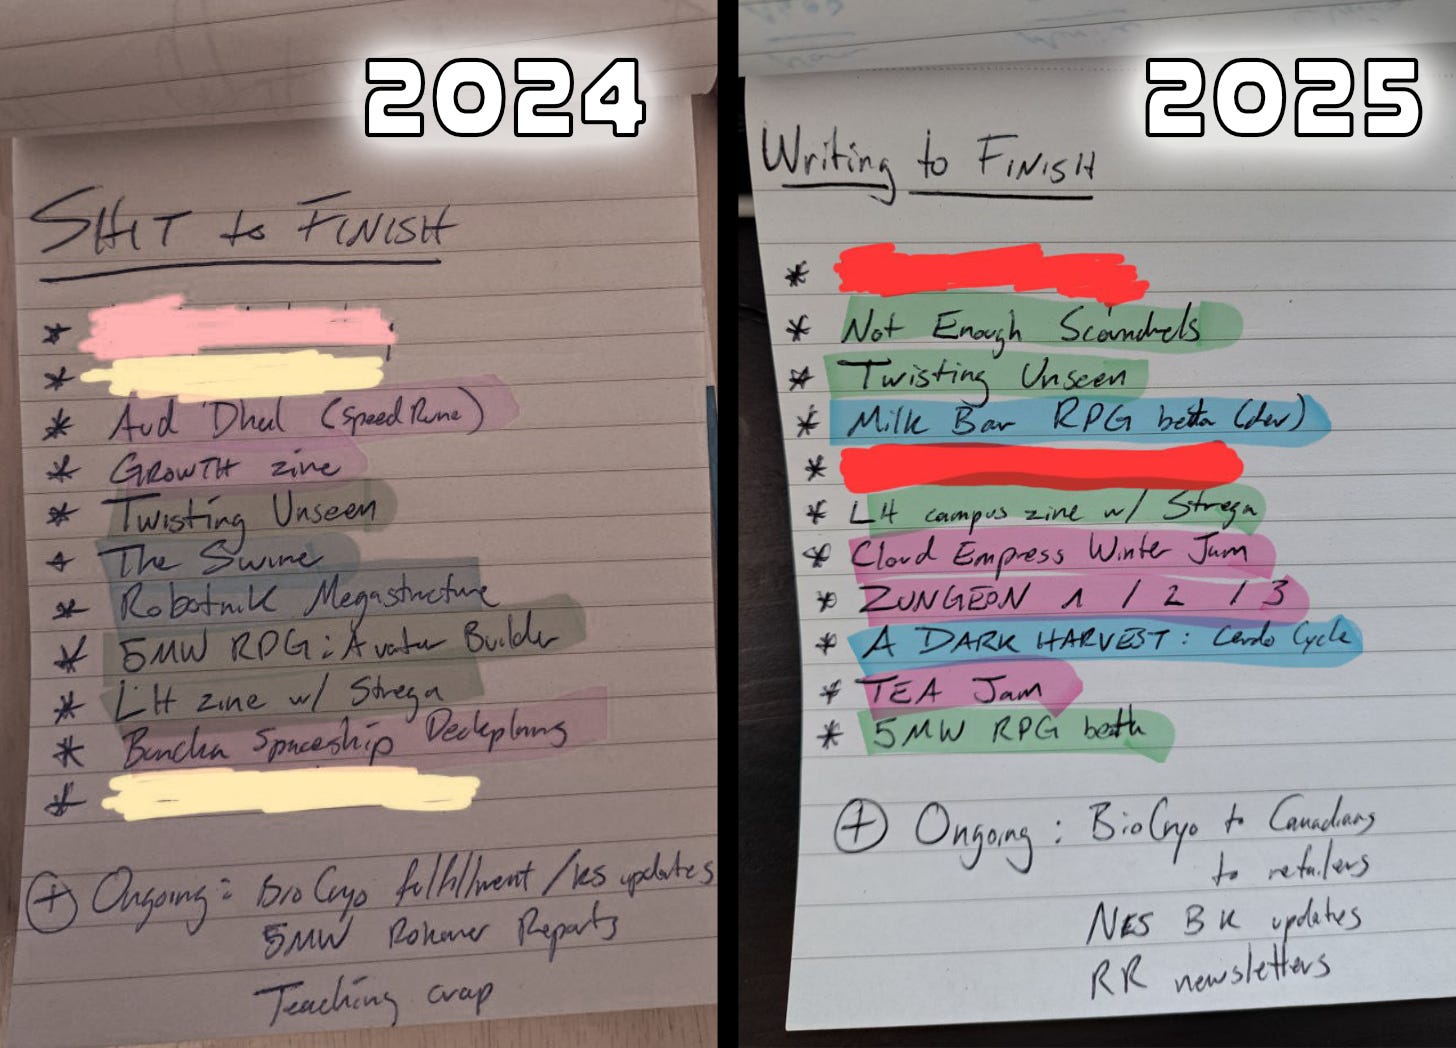 2024
SHIT to FINISH
*
*
* Aud Dhul (Speed Rune)
* GROWTH zine
* Twisting Unseen
* The Swine
* Robotnik Megastructure
* 5MW RPG: Avatar Builder
* LH zine w/ Strega
* Spaceship Deckplans
*
+ Ongoing: BioCryo fulfillment/ks updates
5MW Reports
Teaching crap
2025
Writing to FINISH
*
* Not Enough Scoundrels
* Twisting Unseen
* Milk Bar RPG beta (dev)
*
* LH campus zine w/ Strega
* Cloud Empress Winter Jam
* ZUNGEON 1 / 2 / 3
* A DARK HARVEST: Cycle
* TEA Jam
* 5MW RPG beta
+ Ongoing: BioCryo to Canadians
to retailers
NES BK updates
RR newsletters